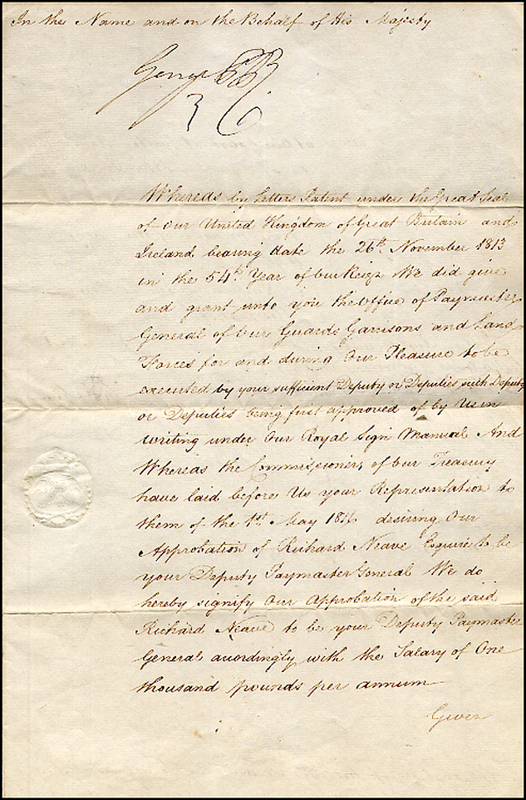 In the Name and on the Behalf of His Majesty
George P R
Whereas by Letters Patent under the Great Seal
of Our United Kingdom of Great Britain and
Ireland bearing date the 26th November 1813
in the 54th Year of Our Reign We did give
and grant unto you the Office of Paymaster
General of Our Guards Garrisons and Land
Forces for and during Our Pleasure to be
executed by your sufficient Deputy or Deputies such Deputy
or Deputies being first approved of by Us in
writing under Our Royal Sign Manual And
Whereas the Commissioners of Our Treasury
have laid before Us your Representation to
them of the 1st May desiring Our
Approbation of Richard Neave Esquire to be
your Deputy Paymaster General We do
hereby signify Our Approbation of the said
Richard Neave to be your Deputy Paymaster
General accordingly with the Salary of One
thousand pounds per annum
Given